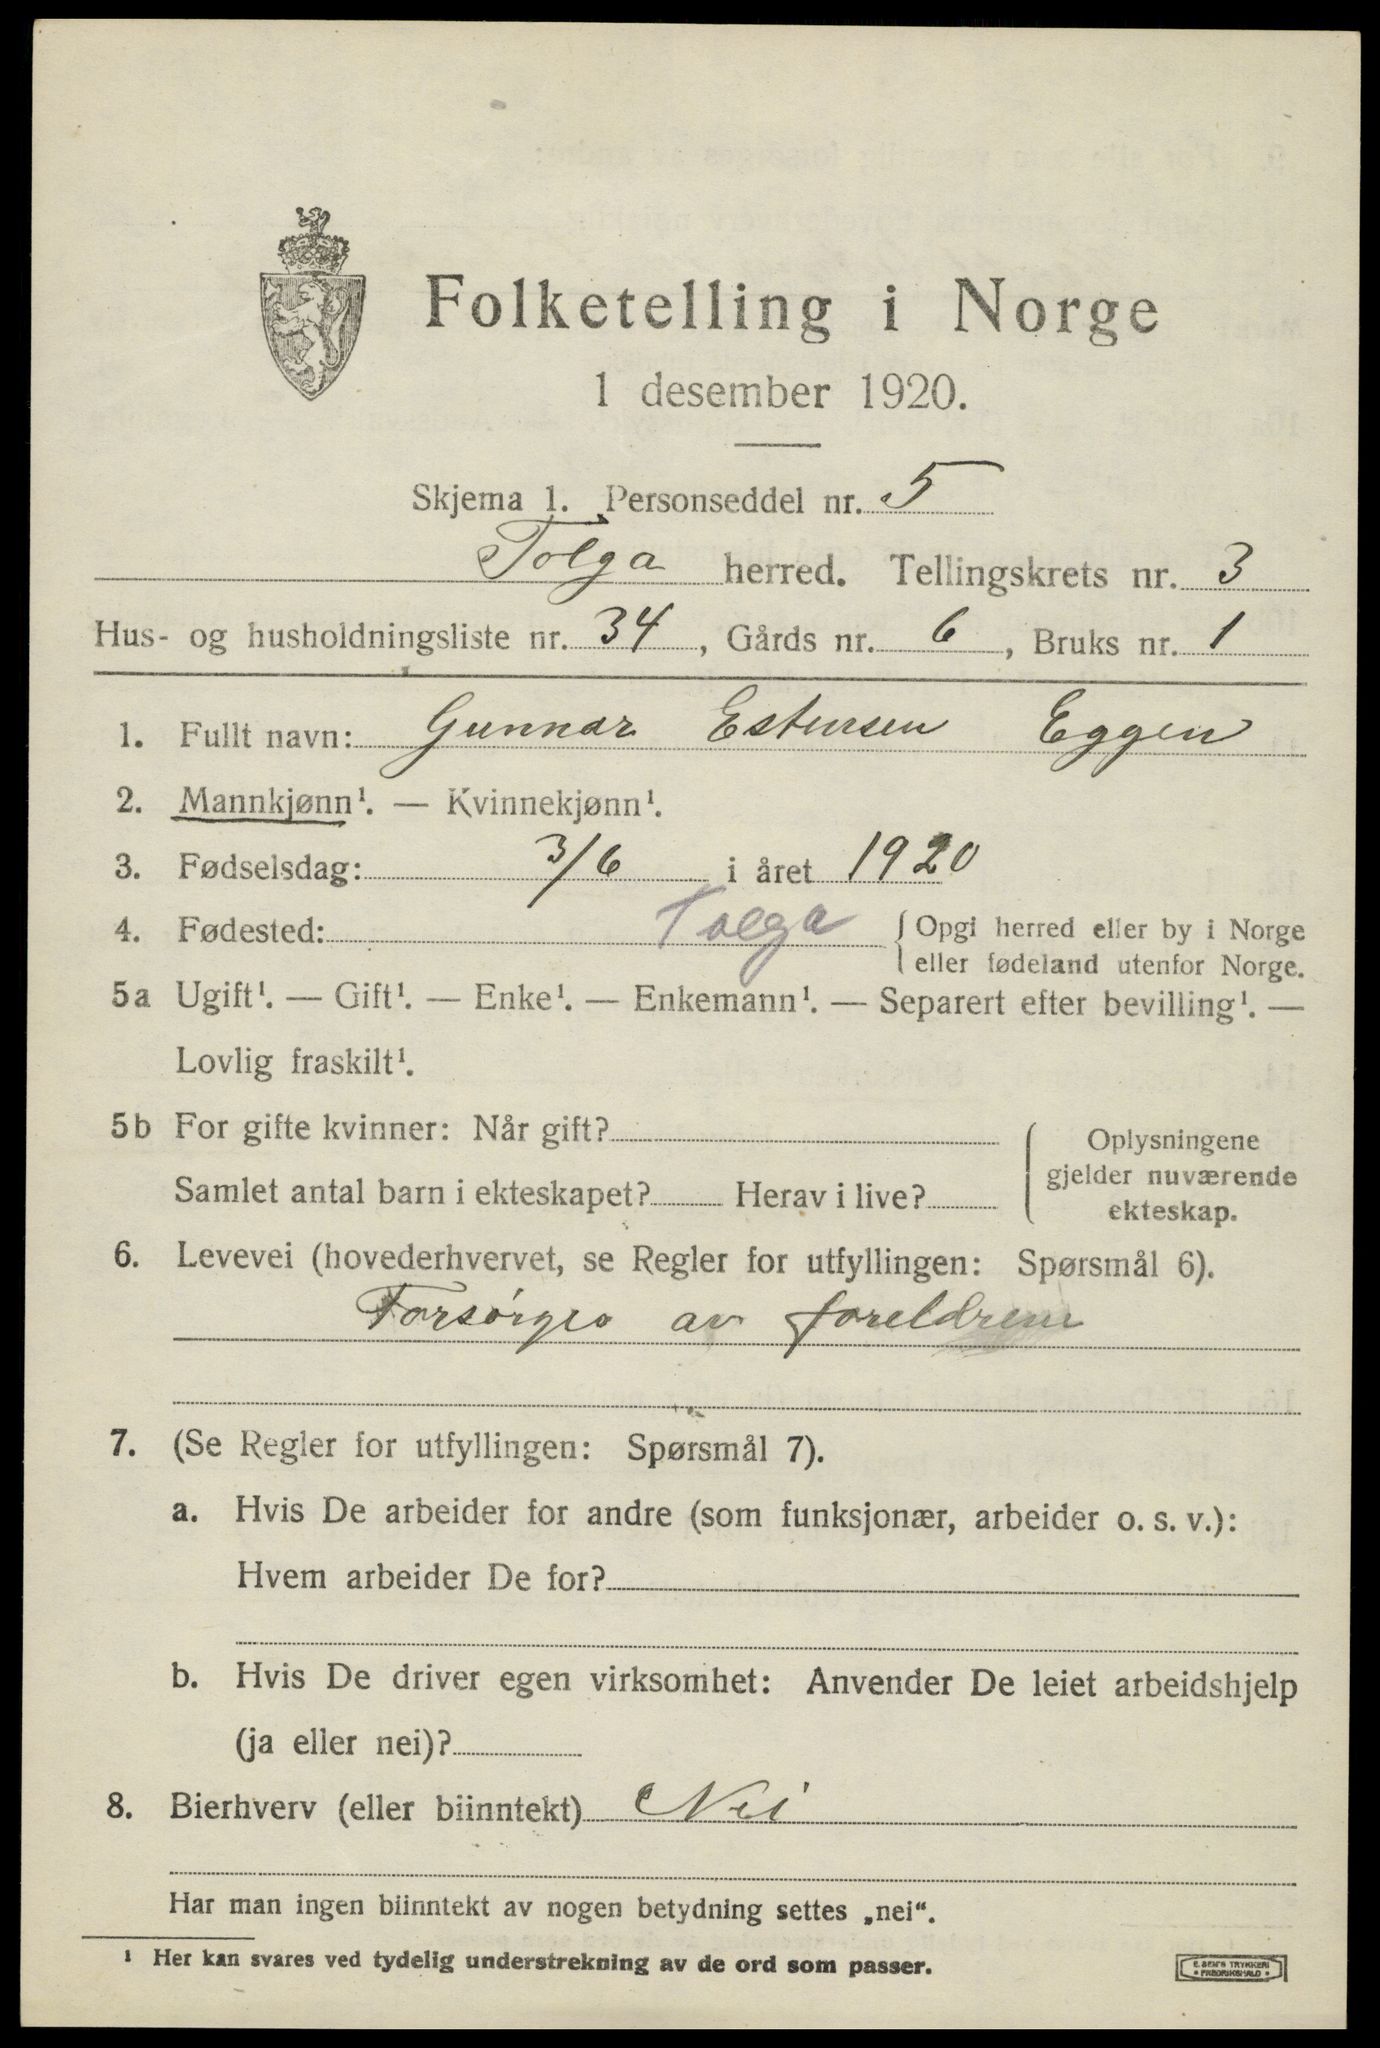 Folketelling i Norge
1 desember 1920.
Skjema 1. Personseddel nr. 5
Tolga herred. Tellingskrets nr. 3
Hus- og husholdningsliste nr. 34, Gårds nr. 6, Bruks nr. 1
1. Fullt navn: Gunnar Estensen Eggen
2. Mannkjønn¹. — Kvinnekjønn¹.
3. Fødselsdag: 3/6 i året 1920
4. Fødested: Tolga { Opgi herred eller by i Norge
eller fødeland utenfor Norge.
5a Ugift¹. — Gift¹. — Enke¹. — Enkemann¹. — Separert efter bevilling¹. —
Lovlig fraskilt¹.
5b For gifte kvinner: Når gift?
Samlet antal barn i ekteskapet? Herav i live?
Oplysningene
gjelder nuværende
ekteskap.
6. Levevei (hovederhvervet, se Regler for utfyllingen: Spørsmål 6).
Forsørges av foreldrene
7. (Se Regler for utfyllingen: Spørsmål 7).
a. Hvis De arbeider for andre (som funksjonær, arbeider o. s. v.):
Hvem arbeider De for?
b. Hvis De driver egen virksomhet: Anvender De leiet arbeidshjelp
(ja eller nei)?
8. Bierhverv (eller biinntekt) Nei
Har man ingen biinntekt av nogen betydning settes „nei“.
¹ Her kan svares ved tydelig understrekning av de ord som passer.
E. SEM'S TRYKKERI
FREDRIKSHALD